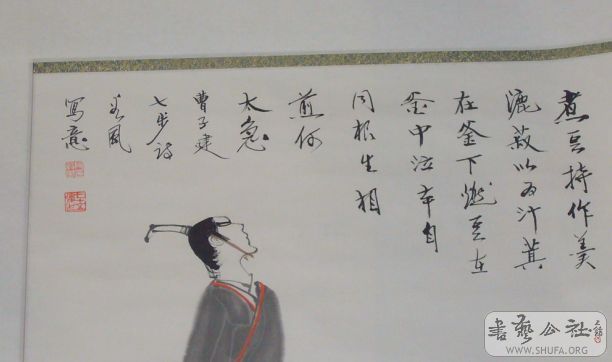 煮豆持作羹
漉菽以为汁萁
在釜下燃豆在
釜中泣本自
同根生相
煎何
太急
曹子建
七步诗
春风
写意
書藝公社
WWW.SHUFA.ORG